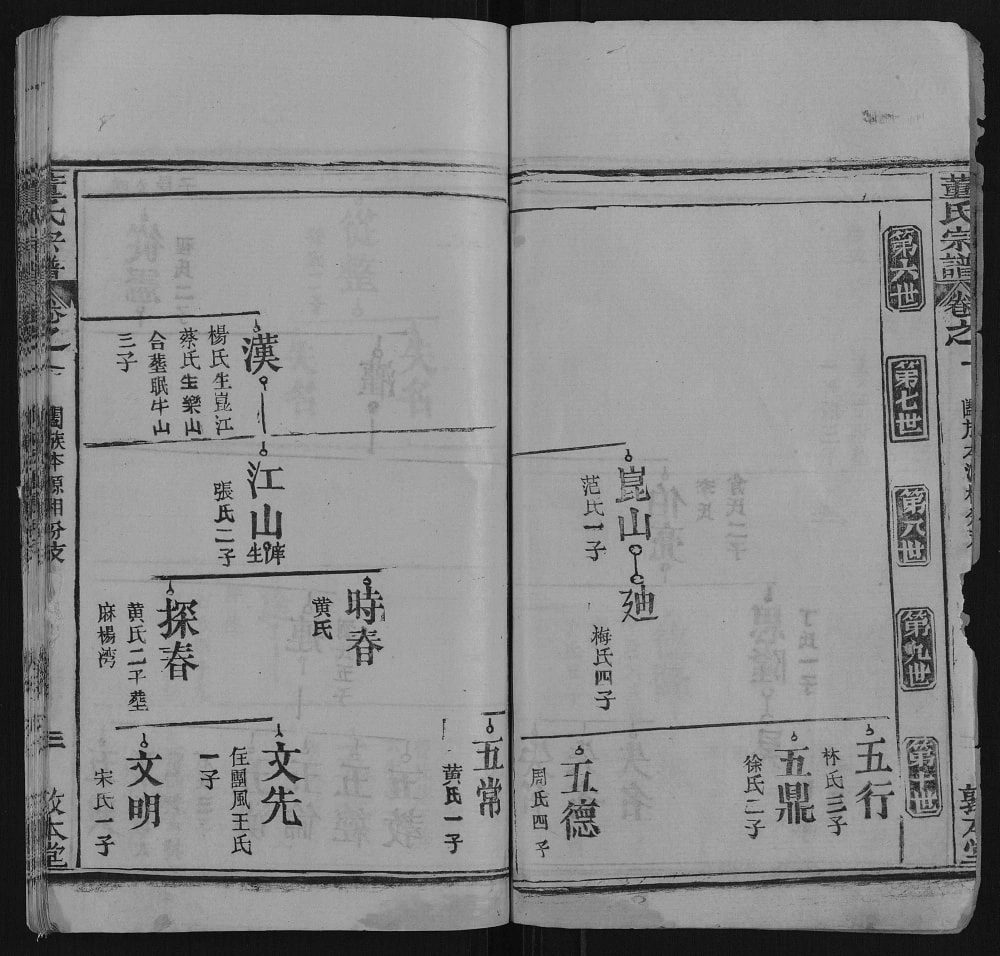 董氏宗譜
卷之一
敦本堂
第六世
第七世
第八世
第九世
第十世
崑山
范氏一子
廸
梅氏四子
五行
林氏三子
五鼎
徐氏二子
五德
周氏四子
五常
黄氏一子
漢
楊氏生崑江
蔡氏生樂山
合塟眠牛山
三子
江山
庠生
張氏二子
時春
黄氏
探春
黄氏二子塟
麻楊湾
文先
住團風王氏
一子
文明
宋氏一子
董氏宗譜
卷之一
闔族本源相分支
三
敦本堂